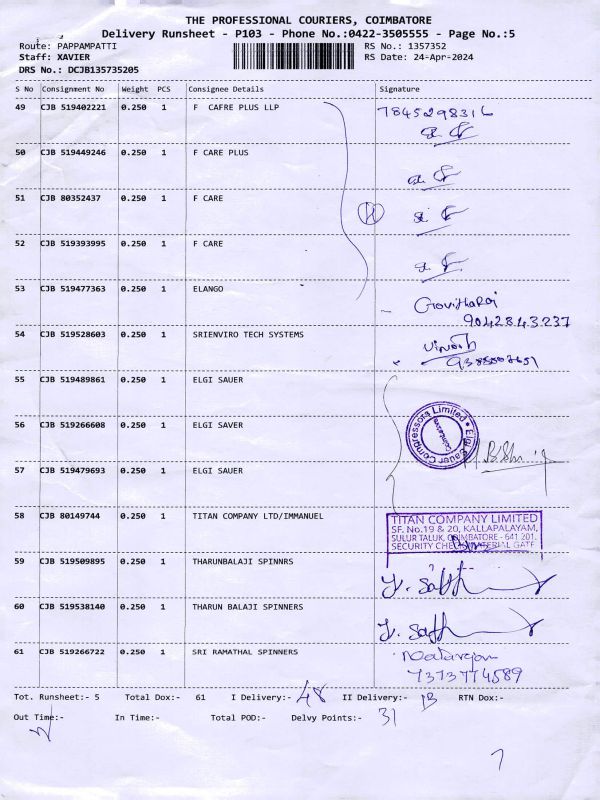 THE PROFESSIONAL COURIERS, COIMBATORE
Delivery Runsheet - P103 - Phone No.:0422-3505555 - Page No.:5
Route: PAPPAMPATTI RS No.: 1357352
Staff: XAVIER RS Date: 24-Apr-2024
DRS No.: DCJB135735205
S No Consignment No Weight PCS Consignee Details Signature
49 CJB 519402221 0.250 1 F CAFRE PLUS LLP 7845298316
50 CJB 519449246 0.250 1 F CARE PLUS
51 CJB 80352437 0.250 1 F CARE
52 CJB 519393995 0.250 1 F CARE
53 CJB 519477363 0.250 1 ELANGO GovithaRaj
9042843237
54 CJB 519528603 0.250 1 SRIENVIRO TECH SYSTEMS Vinoth
55 CJB 519489861 0.250 1 ELGI SAUER
56 CJB 519266608 0.250 1 ELGI SAVER
Elgi Sauer Compressors Limited
Coimbatore
57 CJB 519479693 0.250 1 ELGI SAUER
58 CJB 80149744 0.250 1 TITAN COMPANY LTD/IMMANUEL
TITAN COMPANY LIMITED
SF. No.19 & 20, KALLAPALAYAM,
SULUR TALUK, COIMBATORE - 641 201.
SECURITY CHECK MATERIAL GATE
59 CJB 519509895 0.250 1 THARUNBALAJI SPINNRS
60 CJB 519538140 0.250 1 THARUN BALAJI SPINNERS
61 CJB 519266722 0.250 1 SRI RAMATHAL SPINNERS Natarajan
7373774589
Tot. Runsheet:- 5 Total Dox:- 61 I Delivery:- 48 II Delivery:- 13 RTN Dox:-
Out Time:- In Time:- Total POD:- Delvy Points:- 31